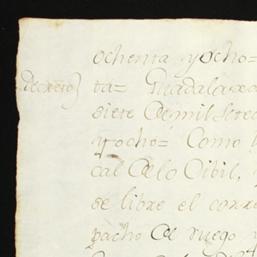 ochenta y ocho=
decreto) ta= Guadalaxa
siete de mil sete
y ocho= Como
cal de lo Cibil,
se libre el corre
pacho de ruego y